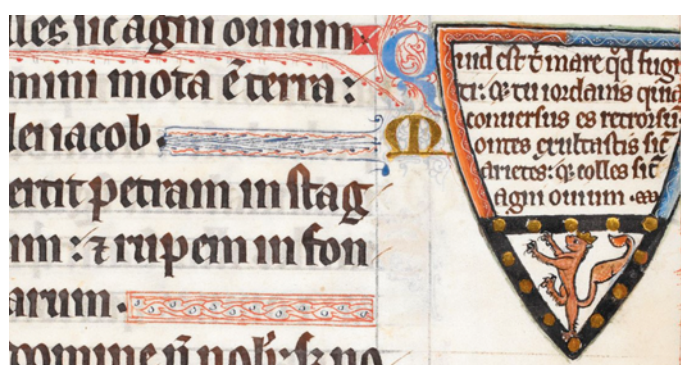 lles sic agni ouium
mini mota ē terra :
dei iacob .
ertit petram in stag
um : ⁊ rupem in fon
arum .
domine n̄ nob̄ : sꝫ no
Quid est t̄ mare qd̄ fugi
sti : & tu iordanis quia
conuersus es retrorsū
Montes exultastis sic̄
arietes : & colles sic̄
agni ouium .